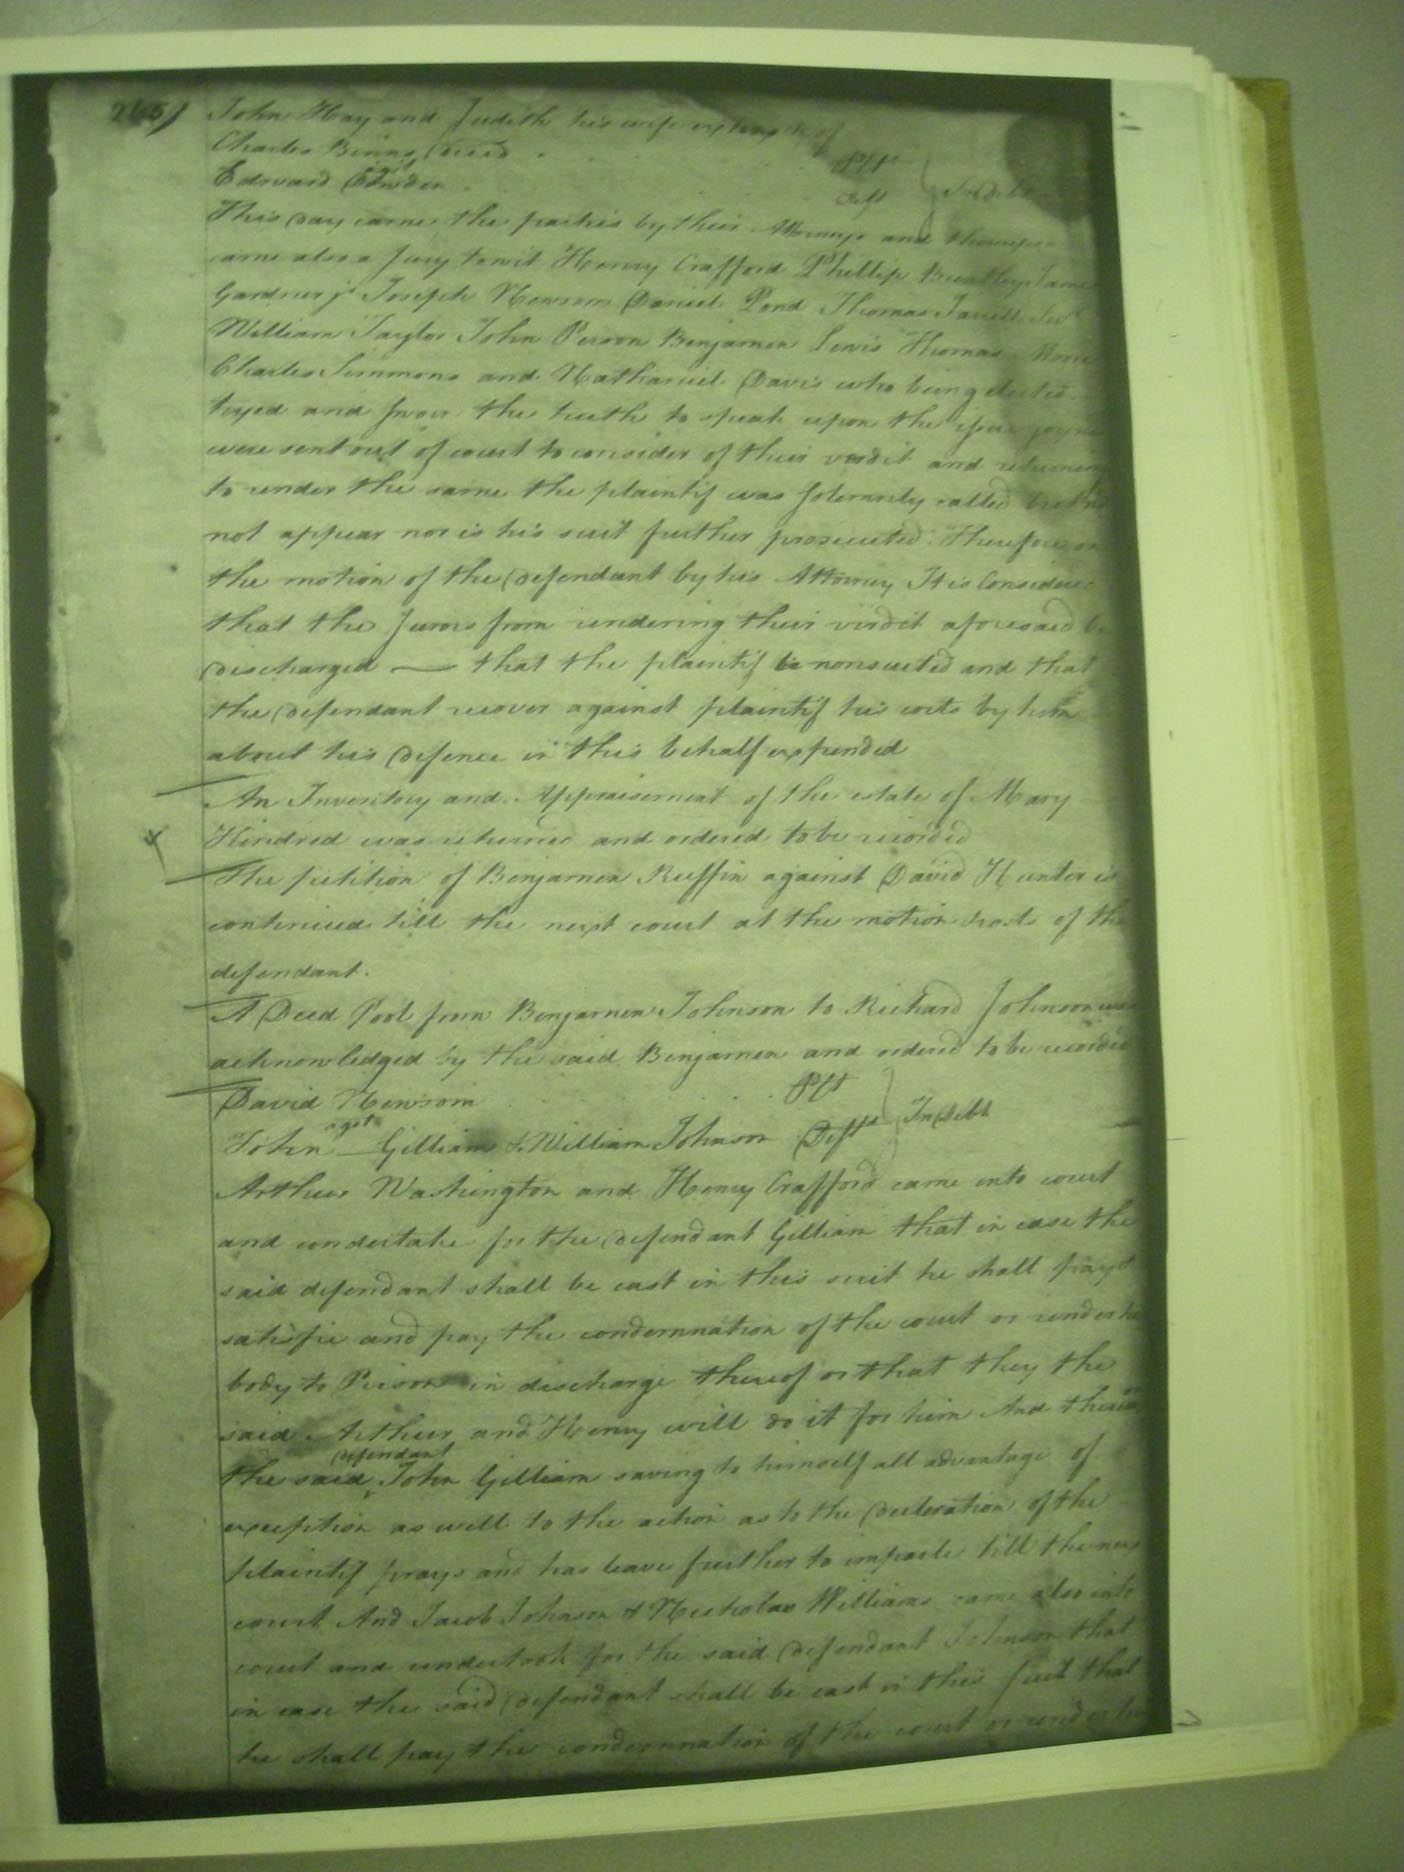 John Hay and Judith his wife of
Charles Binns Decd
Edward
Plt
Deft
This Day came the parties by their Attorneys and thereupon
came also a Jury towit Henry Crafford Phillip Brantley James
Gardner jr Joseph Newsom Daniel Pond Thomas
William Taylor John Person Benjamen Lewis Thomas
Charles Simmons and Nathaniel Davis who being elected
tryed and sworn the truth to speak upon the issue joyned
were sent out of court to consider of their verdit and returning
to render the same the plaintif was solemnly called but did
not appear nor is his suit further prosecuted. Therefore on
the motion of the Defendant by his Attorney It is Considered
that the Jurors from rendering their virdit aforesaid be
Discharged — that the plaintif be nonsuited and that
the Defendant recover against plaintif his costs by him
about his Defence in this behalf expended
An Inventory and Appraisement of the estate of Mary
Kindred was returned and ordered to be recorded
The petition of Benjamen Ruffin against David Hunter is
continued till the next court at the motion & costs of the
defendant.
A Deed Pool from Benjamen Johnson to Richard Johnson was
acknowledged by the said Benjamen and ordered to be recorded
David Newsom Plt
agst
John Gilliam & William Johnson Defts In Debt
Arthur Washington and Henry Crafford came into court
and undertake for the Defendant Gilliam that in case the
said defendant shall be cast in this suit he shall pay &
satisfie and pay the condemnation of the court or render his
body to Prison in discharge thereof or that they the
said Arthur and Henry will do it for him And thereon
defendant
the said John Gilliam saving to himself all advantage of
exception as well to the action as to the Decleration of the
plaintif prays and has leave further to imparle till the next
court And Jacob Johnson & Nicholas Williams came also into
court and undertook for the said Defendant Johnson that
in case the said Defendant shall be cast in this suit that
he shall pay the condemnation of the court or render his